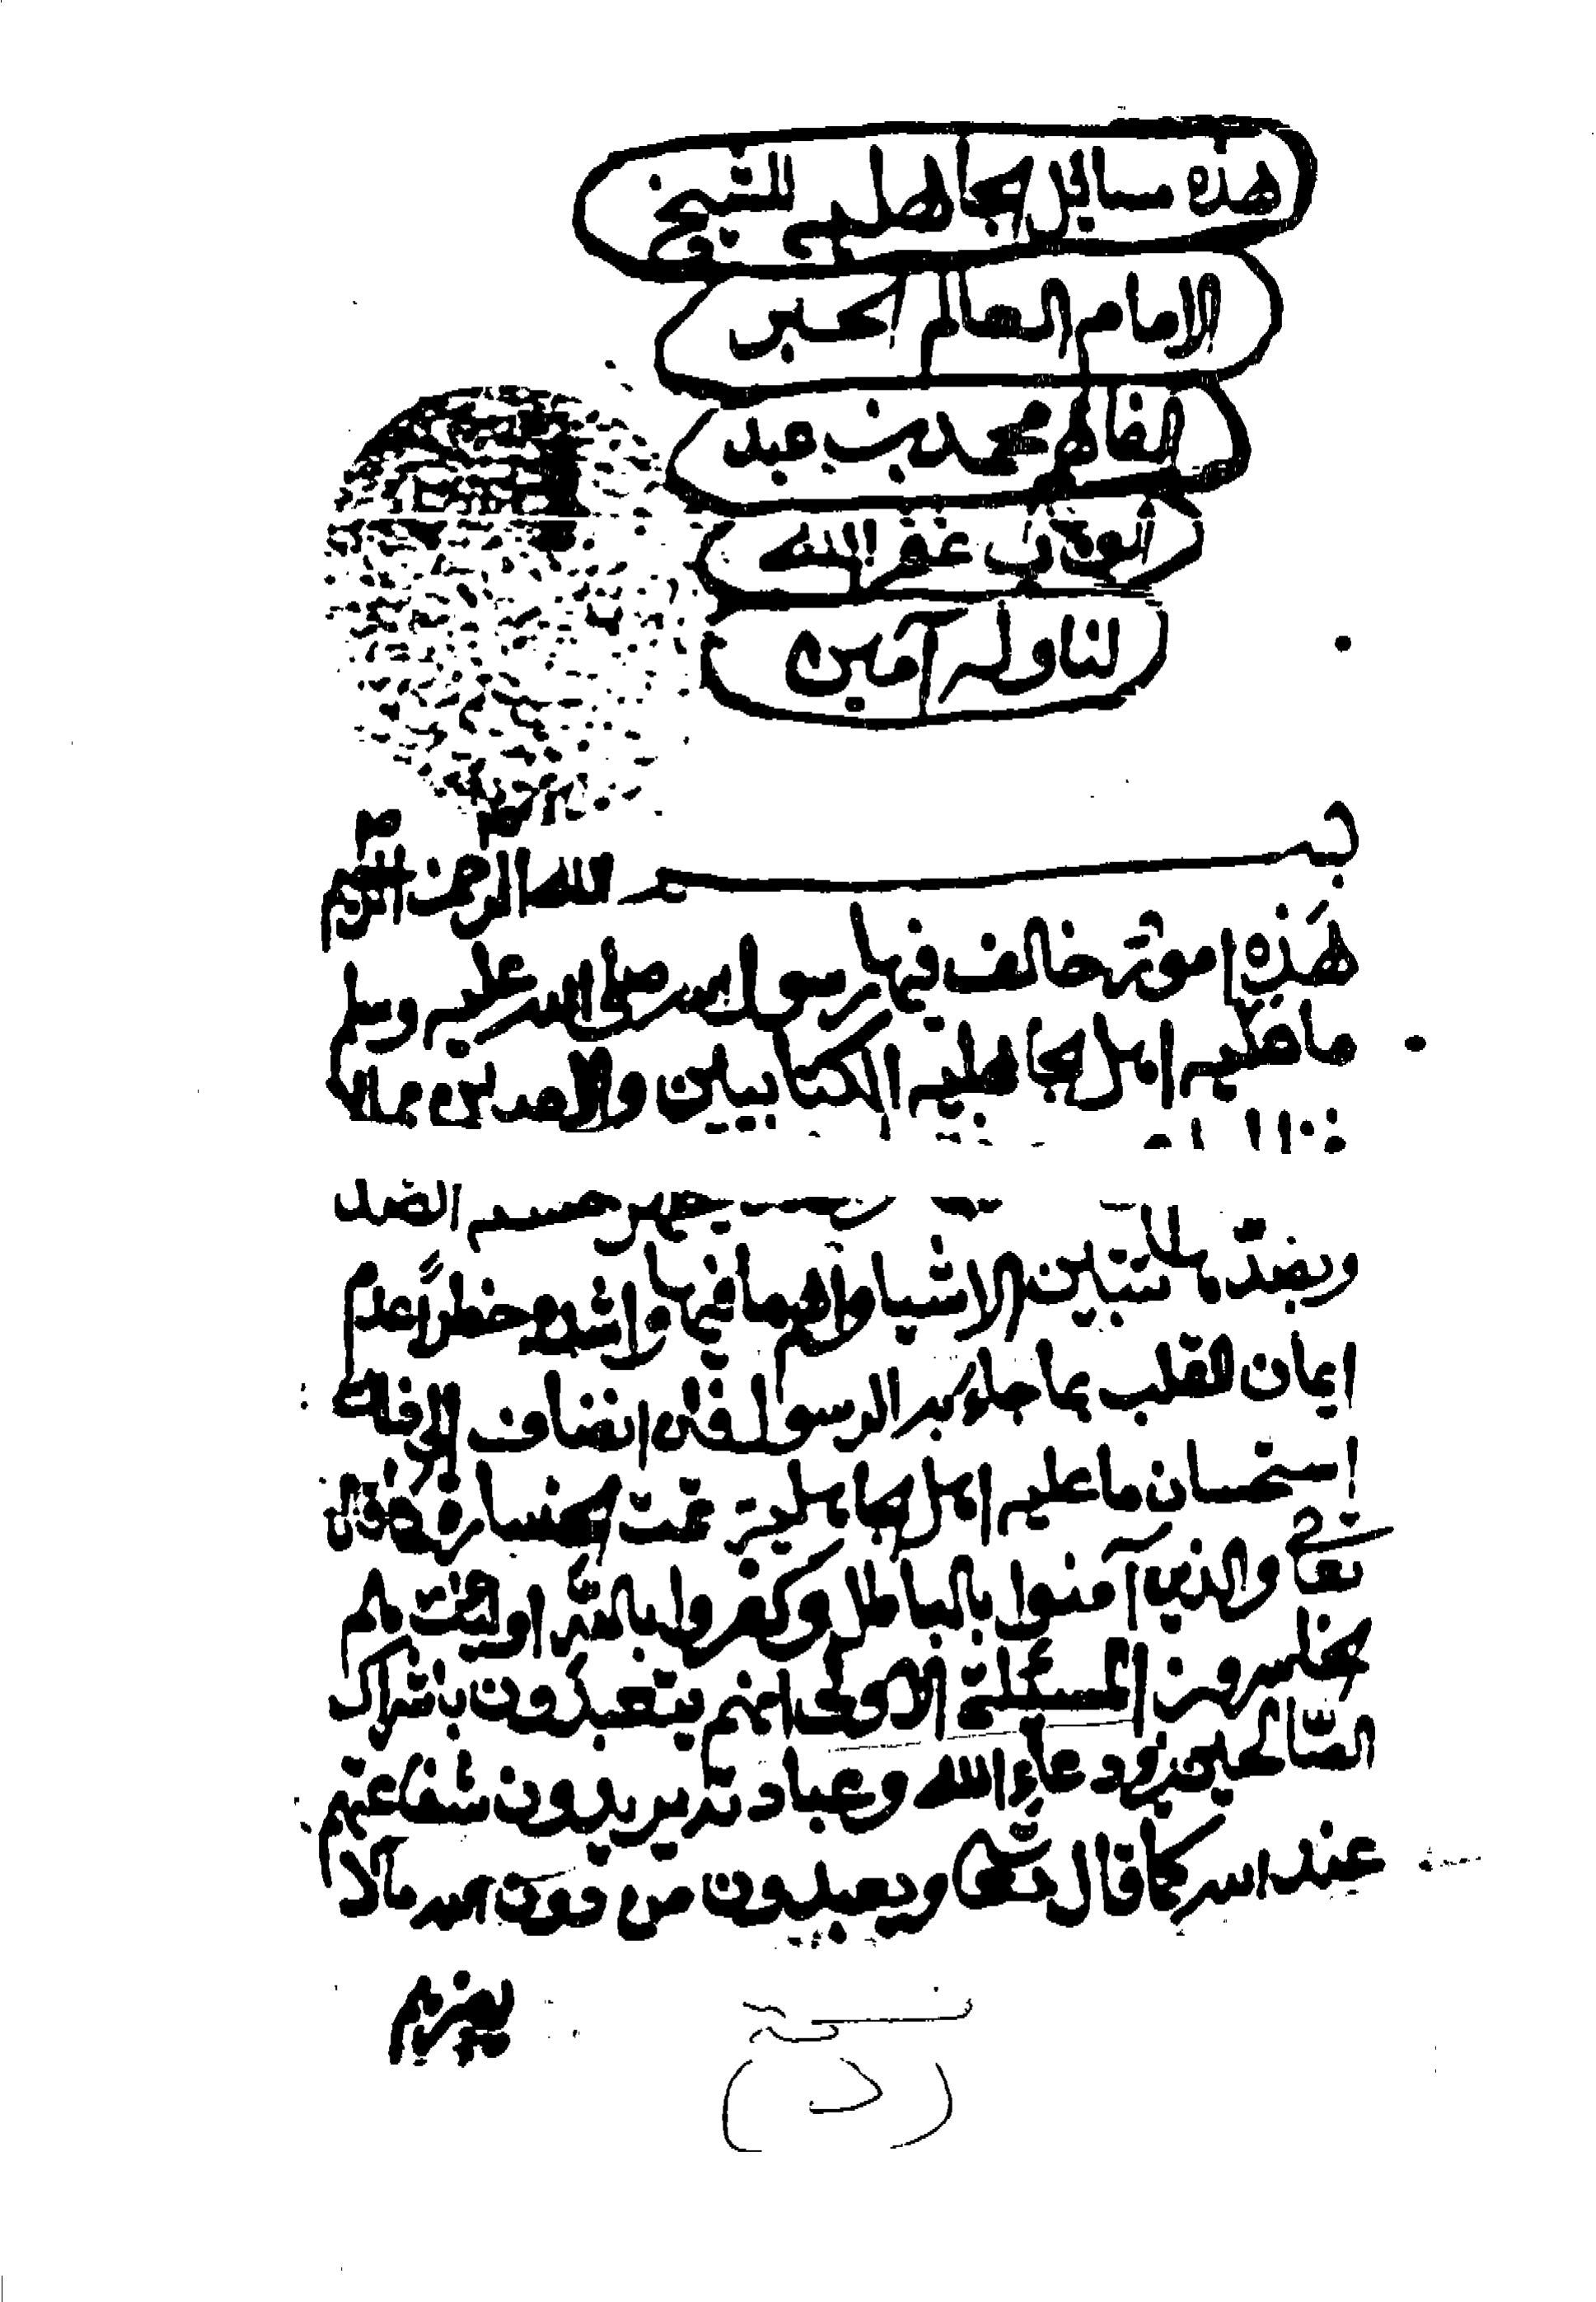 هذه مسائل الجاهلية للشيخ
الامام العالم الحبر
الفاهم محمد بن عبد
الوهاب غفر الله
لنا وله آمين
بسم الله الرحمن الرحيم
هَذِه امور خالف فيها رسول الله صلى الله عليه وسلم
ما عليه اهل الجاهليه الكتابيين والاميين مما لا
الضد
وبضدّها تتبين الاشيا واهم ما فيها واشده خطراً عدم
ايمان القلب بما جاء به الرسول فان انضاف الى ذلك
استحسان ما عليه اهل الجاهلية تمت الخسارة كما قال
تعالى والذين آمنوا بالباطل وكفروا بالله اولئك هم
الخاسرون المسئلة الاولى انهم يتعبدون باشراك
الصّالحين في دعاء الله وعبادته يريدون شفاعتهم
عند الله كما قال تعالى ويعبدون من دون الله ما لا
يضرهم
نسخة
(د)